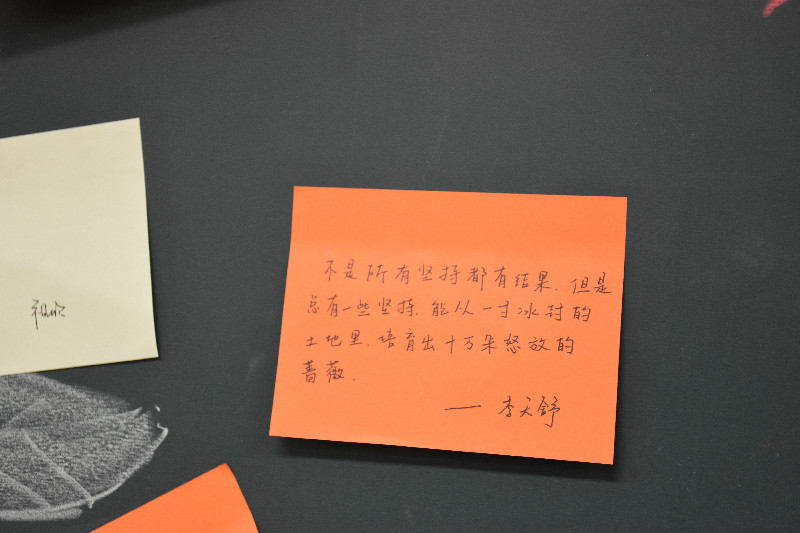 不是所有坚持都有结果.但是
总有一些坚持.能从一寸冰封的
土地里.培育出十万朵怒放的
蔷薇.
—— 李天舒